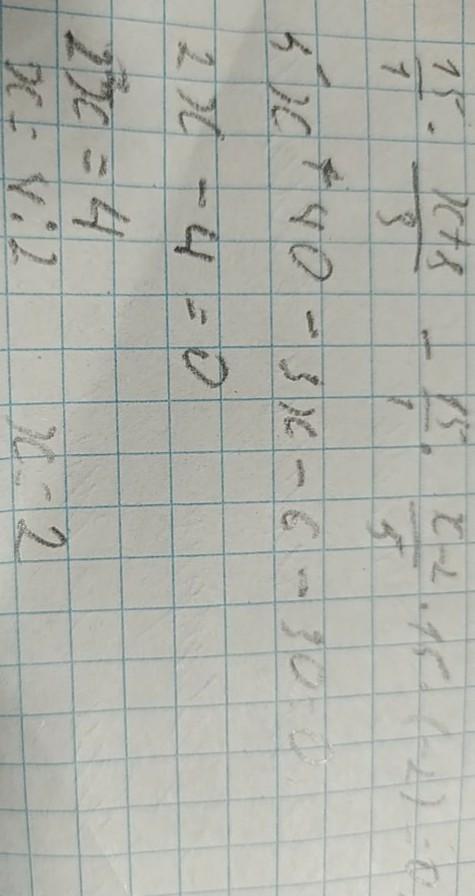 15/1 · x+8/3 - 15/1 · x-2/5 · 15 · (-2) = 0
5x + 40 - 3x - 6 - 30 = 0
2x - 4 = 0
2x = 4
x = 4:2 x = 2